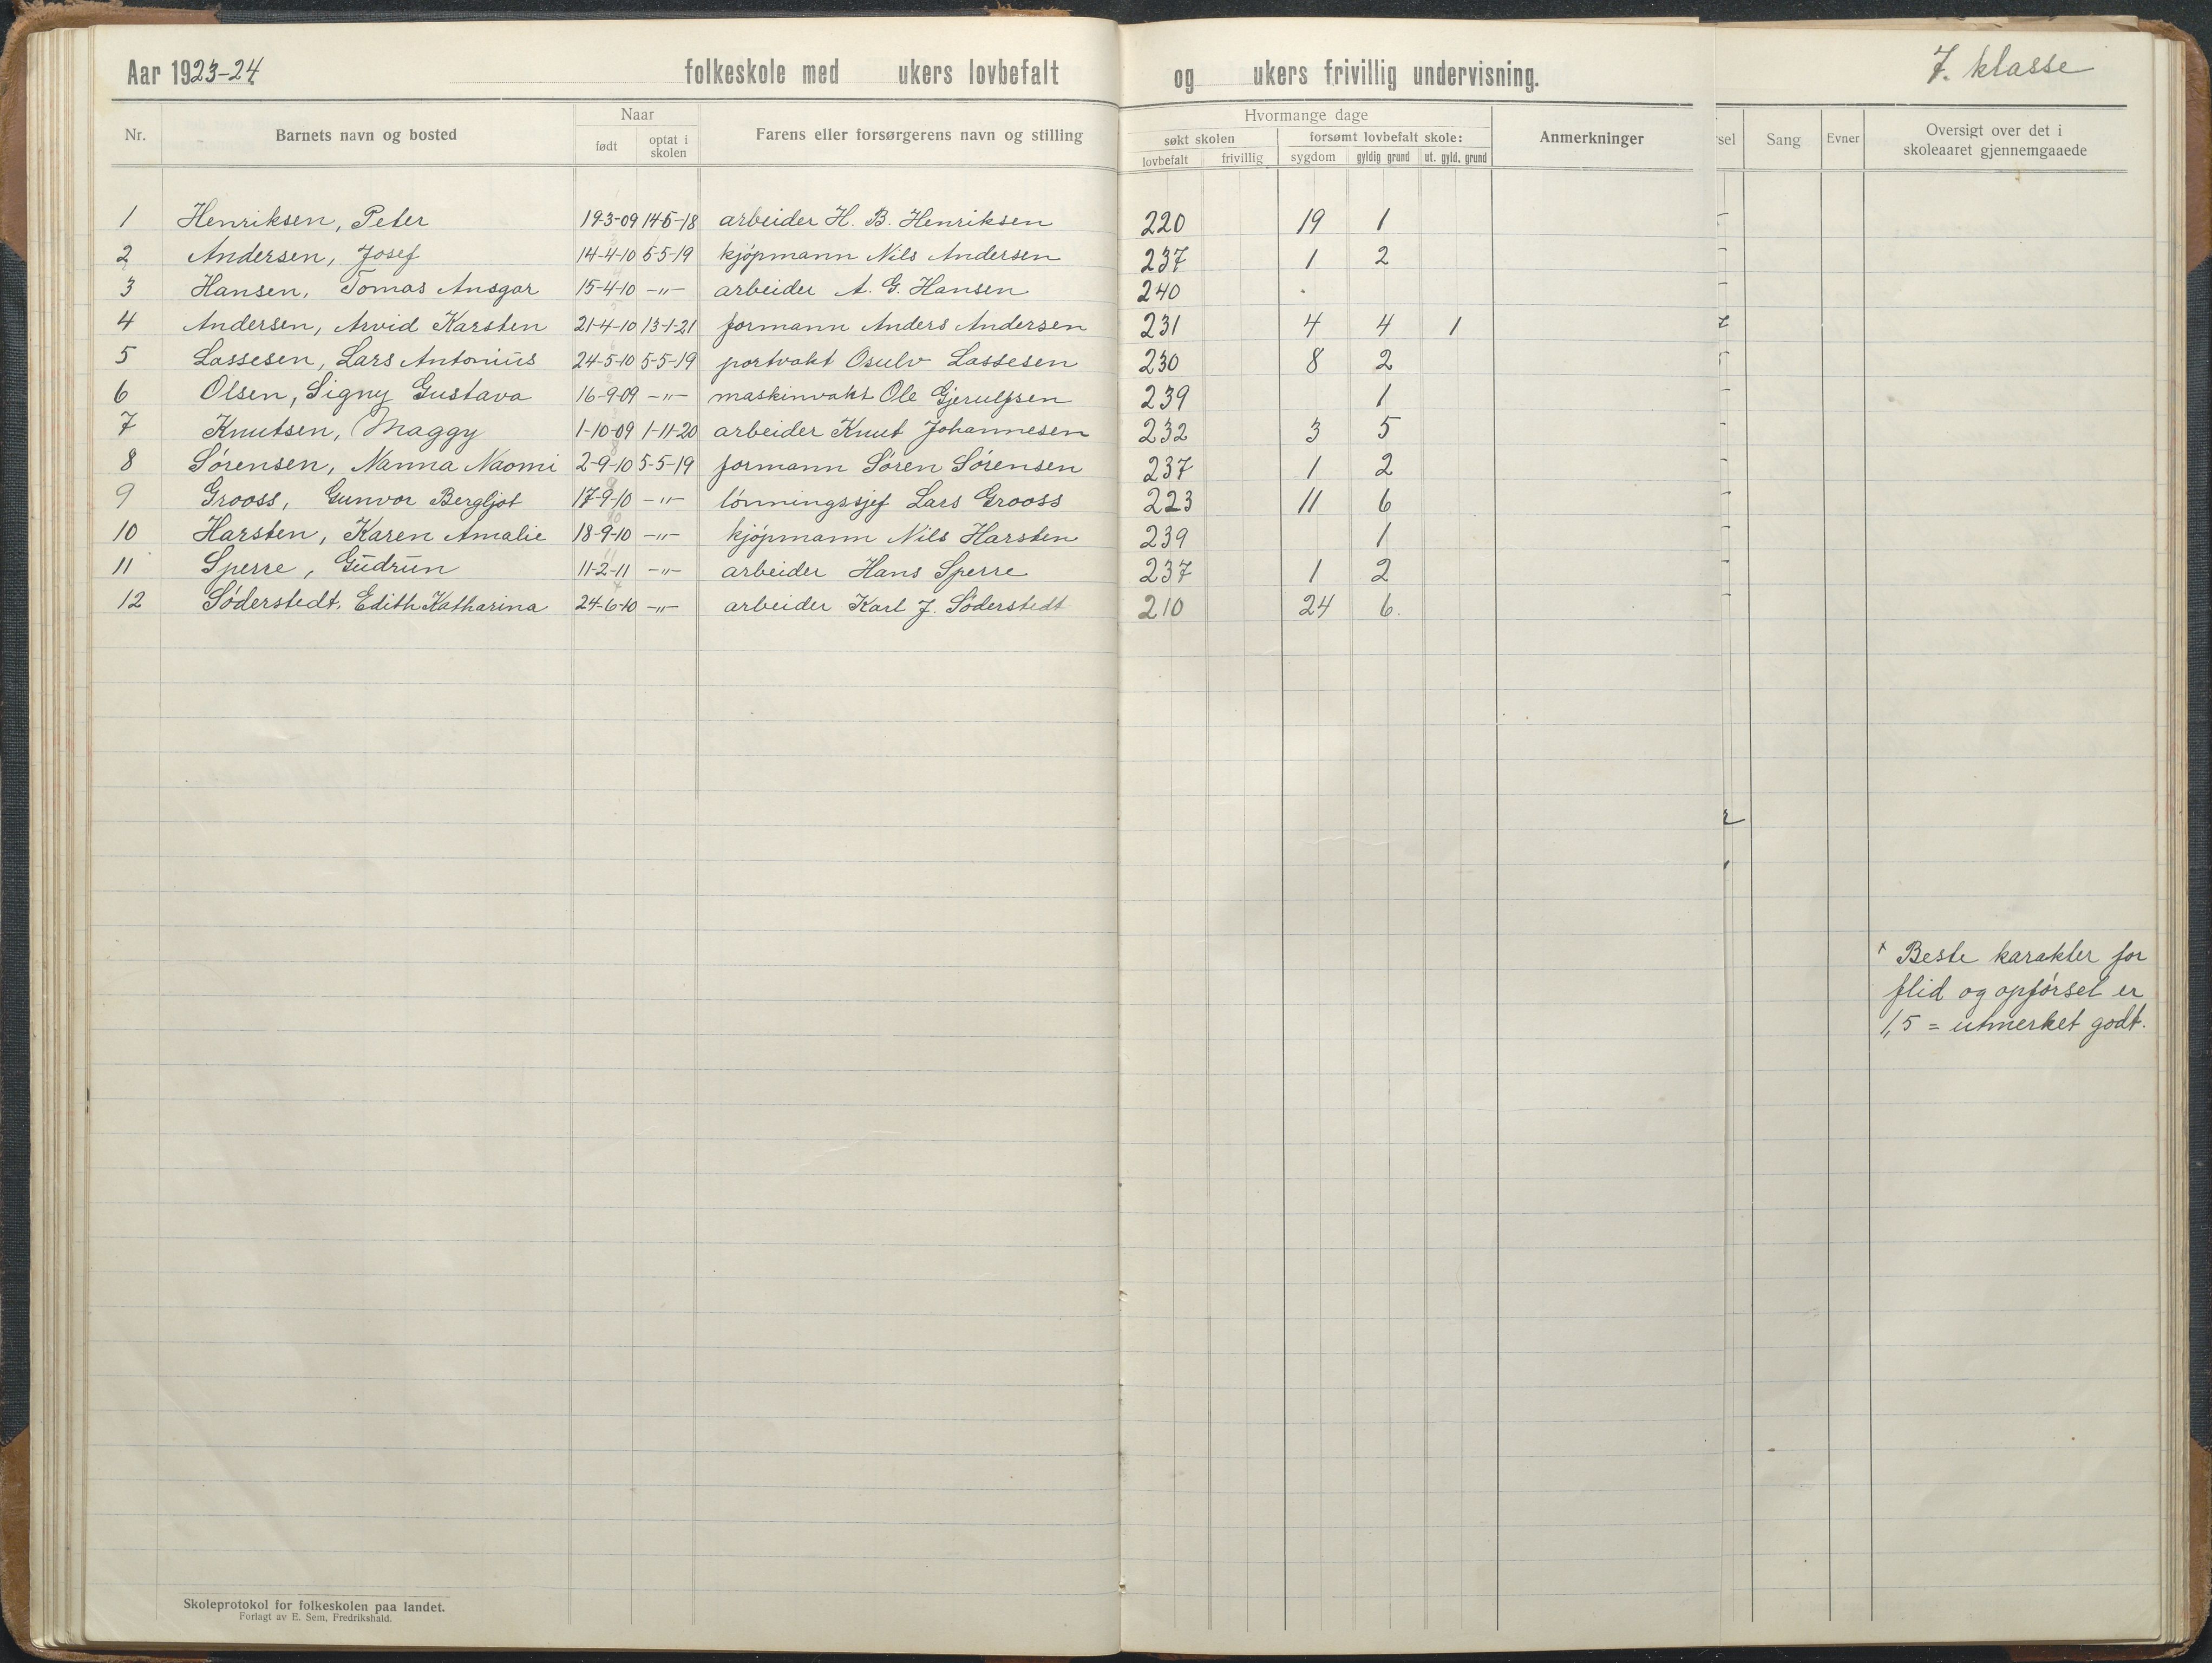 Aar 1923-24 folkeskole med ukers lovbefalt og ukers frivillig undervisning. 7. klasse
Nr. Barnets navn og bosted Naar født optat i skolen Farens eller forsørgerens navn og stilling Hvormange dage søkt skolen lovbefalt frivillig forsømt lovbefalt skole: sygdom gyldig grund ut. gyld. grund Anmerkninger Sang Evner Oversigt over det i skoleaaret gjennemgaaede
1 Henriksen, Peter 19-3-09 14-5-18 arbeider H. B. Henriksen 220 19 1
2 Andersen, Josef 14-4-10 5-5-19 kjøpmann Nils Andersen 237 1 2
3 Hansen, Tomas Ansgar 15-4-10 -"- arbeider A. G. Hansen 240 .
4 Andersen, Arvid Karsten 21-4-10 13-1-21 formann Anders Andersen 231 4 4 1
5 Lassesen, Lars Antonius 24-5-10 5-5-19 portvakt Osulv Lassesen 230 8 2
6 Olsen, Signy Gustava 16-9-09 -"- maskinvakt Ole Gjerulfsen 239 1
7 Knutsen, Maggy 1-10-09 1-11-20 arbeider Knut Johannesen 232 3 5
8 Sørensen, Nanna Naomi 2-9-10 5-5-19 formann Søren Sørensen 237 1 2
9 Grooss, Gunvor Bergljot 17-9-10 -"- lønningssjef Lars Grooss 223 11 6
10 Harsten, Karen Amalie 18-9-10 -"- kjøpmann Nils Harsten 239 1
11 Sperre, Gudrun 11-2-11 -"- arbeider Hans Sperre 237 1 2
12 Söderstedt, Edith Katharina 24-6-10 -"- arbeider Karl J. Söderstedt 210 24 6.
x Beste karakter for
flid og opførsel er
1,5 = utmerket godt.
Skoleprotokol for folkeskolen paa landet.
Forlagt av E. Sem, Fredrikshald.